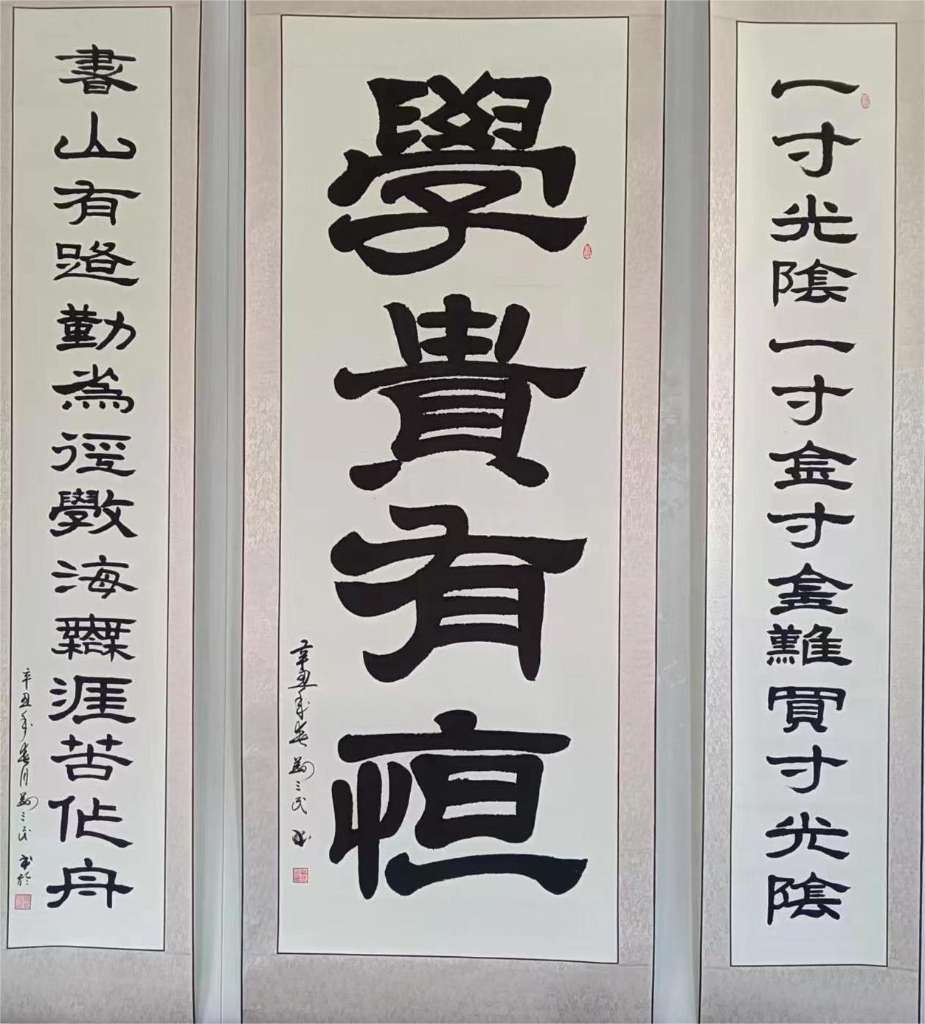 一寸光陰一寸金寸金難買寸光陰
學貴有恒
辛丑年春 三民
書山有路勤為徑斆海無涯苦作舟
辛丑年春月 三民 書於